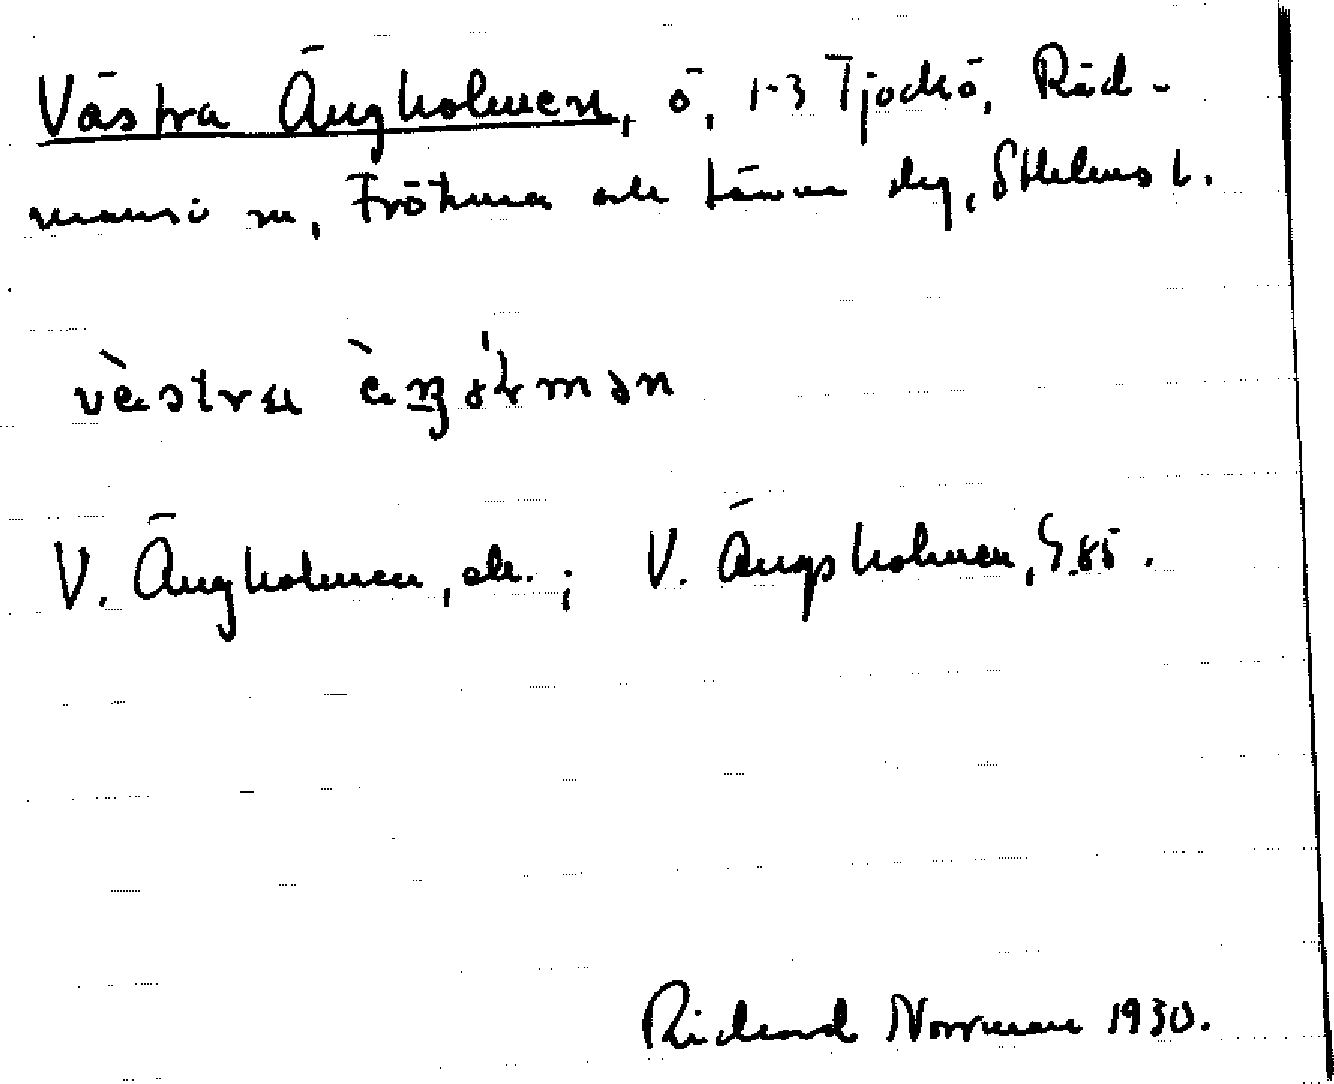 Västra Ängholmen, ö, 1-3 Tjockö, Råd-
mansö sn, Frötuna och Länna skg, Sthlms l.
vèstra èŋɡɔ́lmən
V. Ängholmen, ek.; V. Ängsholmen, S.85.
Richard Norrman 1930.